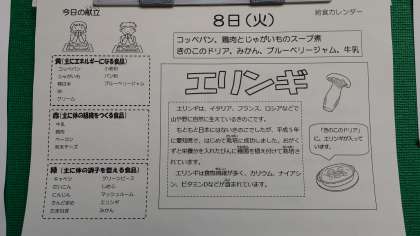 今日の献立
給食カレンダー
8日(火)
コッペパン、鶏肉とじゃがいものスープ煮
きのこのドリア、みかん、ブルーベリージャム、牛乳
黄(主にエネルギーになる食品)
コッペパン 小麦粉
じゃがいも パン粉
精白米 ブルーベリージャム
油
クリーム
赤(主に体の組織をつくる食品)
牛乳
鶏肉
ベーコン
粉末チーズ
緑(主に体の調子を整える食品)
キャベツ グリーンピース
だいこん しめじ
にんじん マッシュルーム
さんどまめ エリンギ
たまねぎ みかん
エリンギ
エリンギは、イタリア、フランス、ロシアなどで
山や野に自然に生えているきのこです。
もともと日本にはないきのこでしたが、平成5年
に愛知県で、はじめて栽培に成功しました。おが
くずと栄養分を入れたびんに種菌を植え付けて栽培さ
れています。
エリンギは食物繊維が多く、カリウム、ナイアシ
ン、ビタミンDなどが含まれています。
「きのこのドリア」
に、エリンギが入って
います。